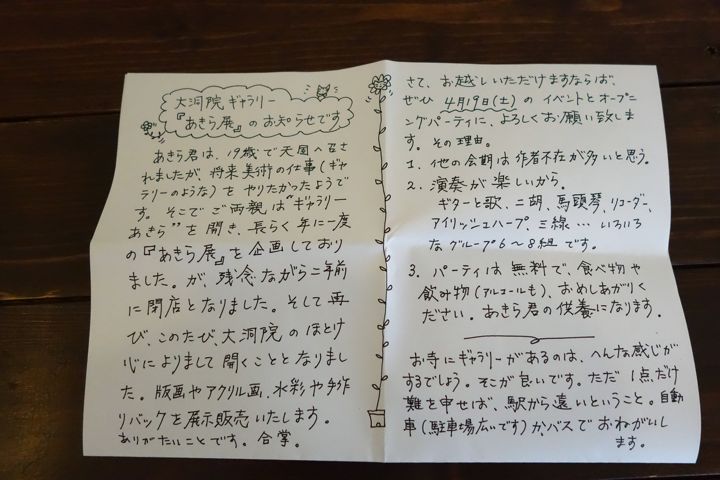 大洞院ギャラリー
『あきら展』のお知らせです
あきら君は、19歳で天国へ召さ
れましたが、将来美術の仕事(ギャ
ラリーのような)を やりたかったようで
す。そこでご両親は“ギャラリー
あきら”を開き、長らく年に一度
の『あきら展』を企画しており
ました。が、残念ながら二年前
に閉店となりました。そして再
び、このたび、大洞院のほとけ
心によりまして開くこととなりまし
た。版画やアクリル画、水彩や手作
りバックを展示販売いたします。
ありがたいことです。合掌。
さて、お越しいただけますならば、
ぜひ 4月19日(土)の イベントとオープニ
ングパーティに、よろしくお願い致しま
す。その理由。
1. 他の会期は作者不在が多いと思う。
2. 演奏が楽しいから。
ギターと歌、二胡、馬頭琴、リコーダー、
アイリッシュハープ、三線… いろいろ
なグループ6〜8組です。
3. パーティは無料で、食べ物や
飲み物(アルコールも)、おめしあがりく
ださい。あきら君の供養になります。
お寺にギャラリーがあるのは、へんな感じが
するでしょう。そこが良いです。ただ1点だけ
難を申せば、駅から遠いということ。自動
車(駐車場広いです)か、バスでおねがいし
ます。